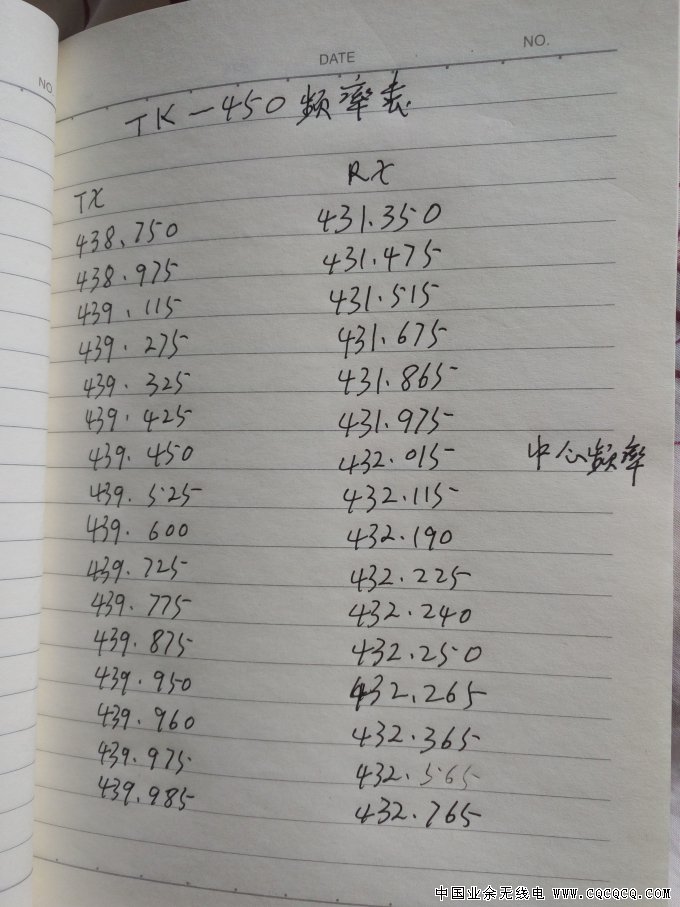 DATE NO.
NO
TK-450 频率表
TX RX
438.750 431.350
438.975 431.475
439.115 431.515
439.275 431.675
439.325 431.865
439.425 431.975
439.450 432.015 中心频率
439.525 432.115
439.600 432.190
439.725 432.225
439.775 432.240
439.875 432.250
439.950 432.265
439.960 432.365
439.975 432.565
439.985 432.765
中国业余无线电 www.cqcqcq.com